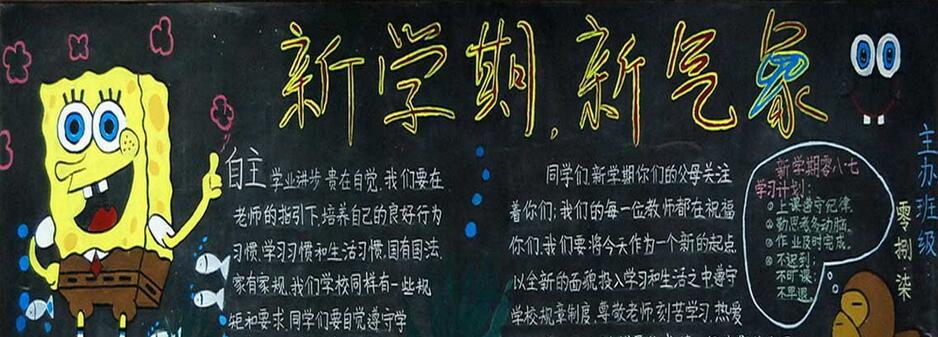 新学期,新气象
自主 学业进步贵在自觉.我们要在
老师的指引下,培养自己的良好行为
习惯,学习习惯和生活习惯.国有国法.
家有家规.我们学校同样有一些规
矩和要求.同学们要自觉遵守学
同学们.新学期你们的父母关注
着你们;我们的每一位教师都在祝福
你们.我们要将今天作为一个新的起点
以全新的面貌投入学习和生活之中遵守
学校规章制度.尊敬老师,刻苦学习.热爱
新学期零八七
学习计划:
①上课遵守纪律.
②勤思考多动脑.
③作业及时完成.
④不迟到;
不旷课;
不早退.
主办班级
零捌柒